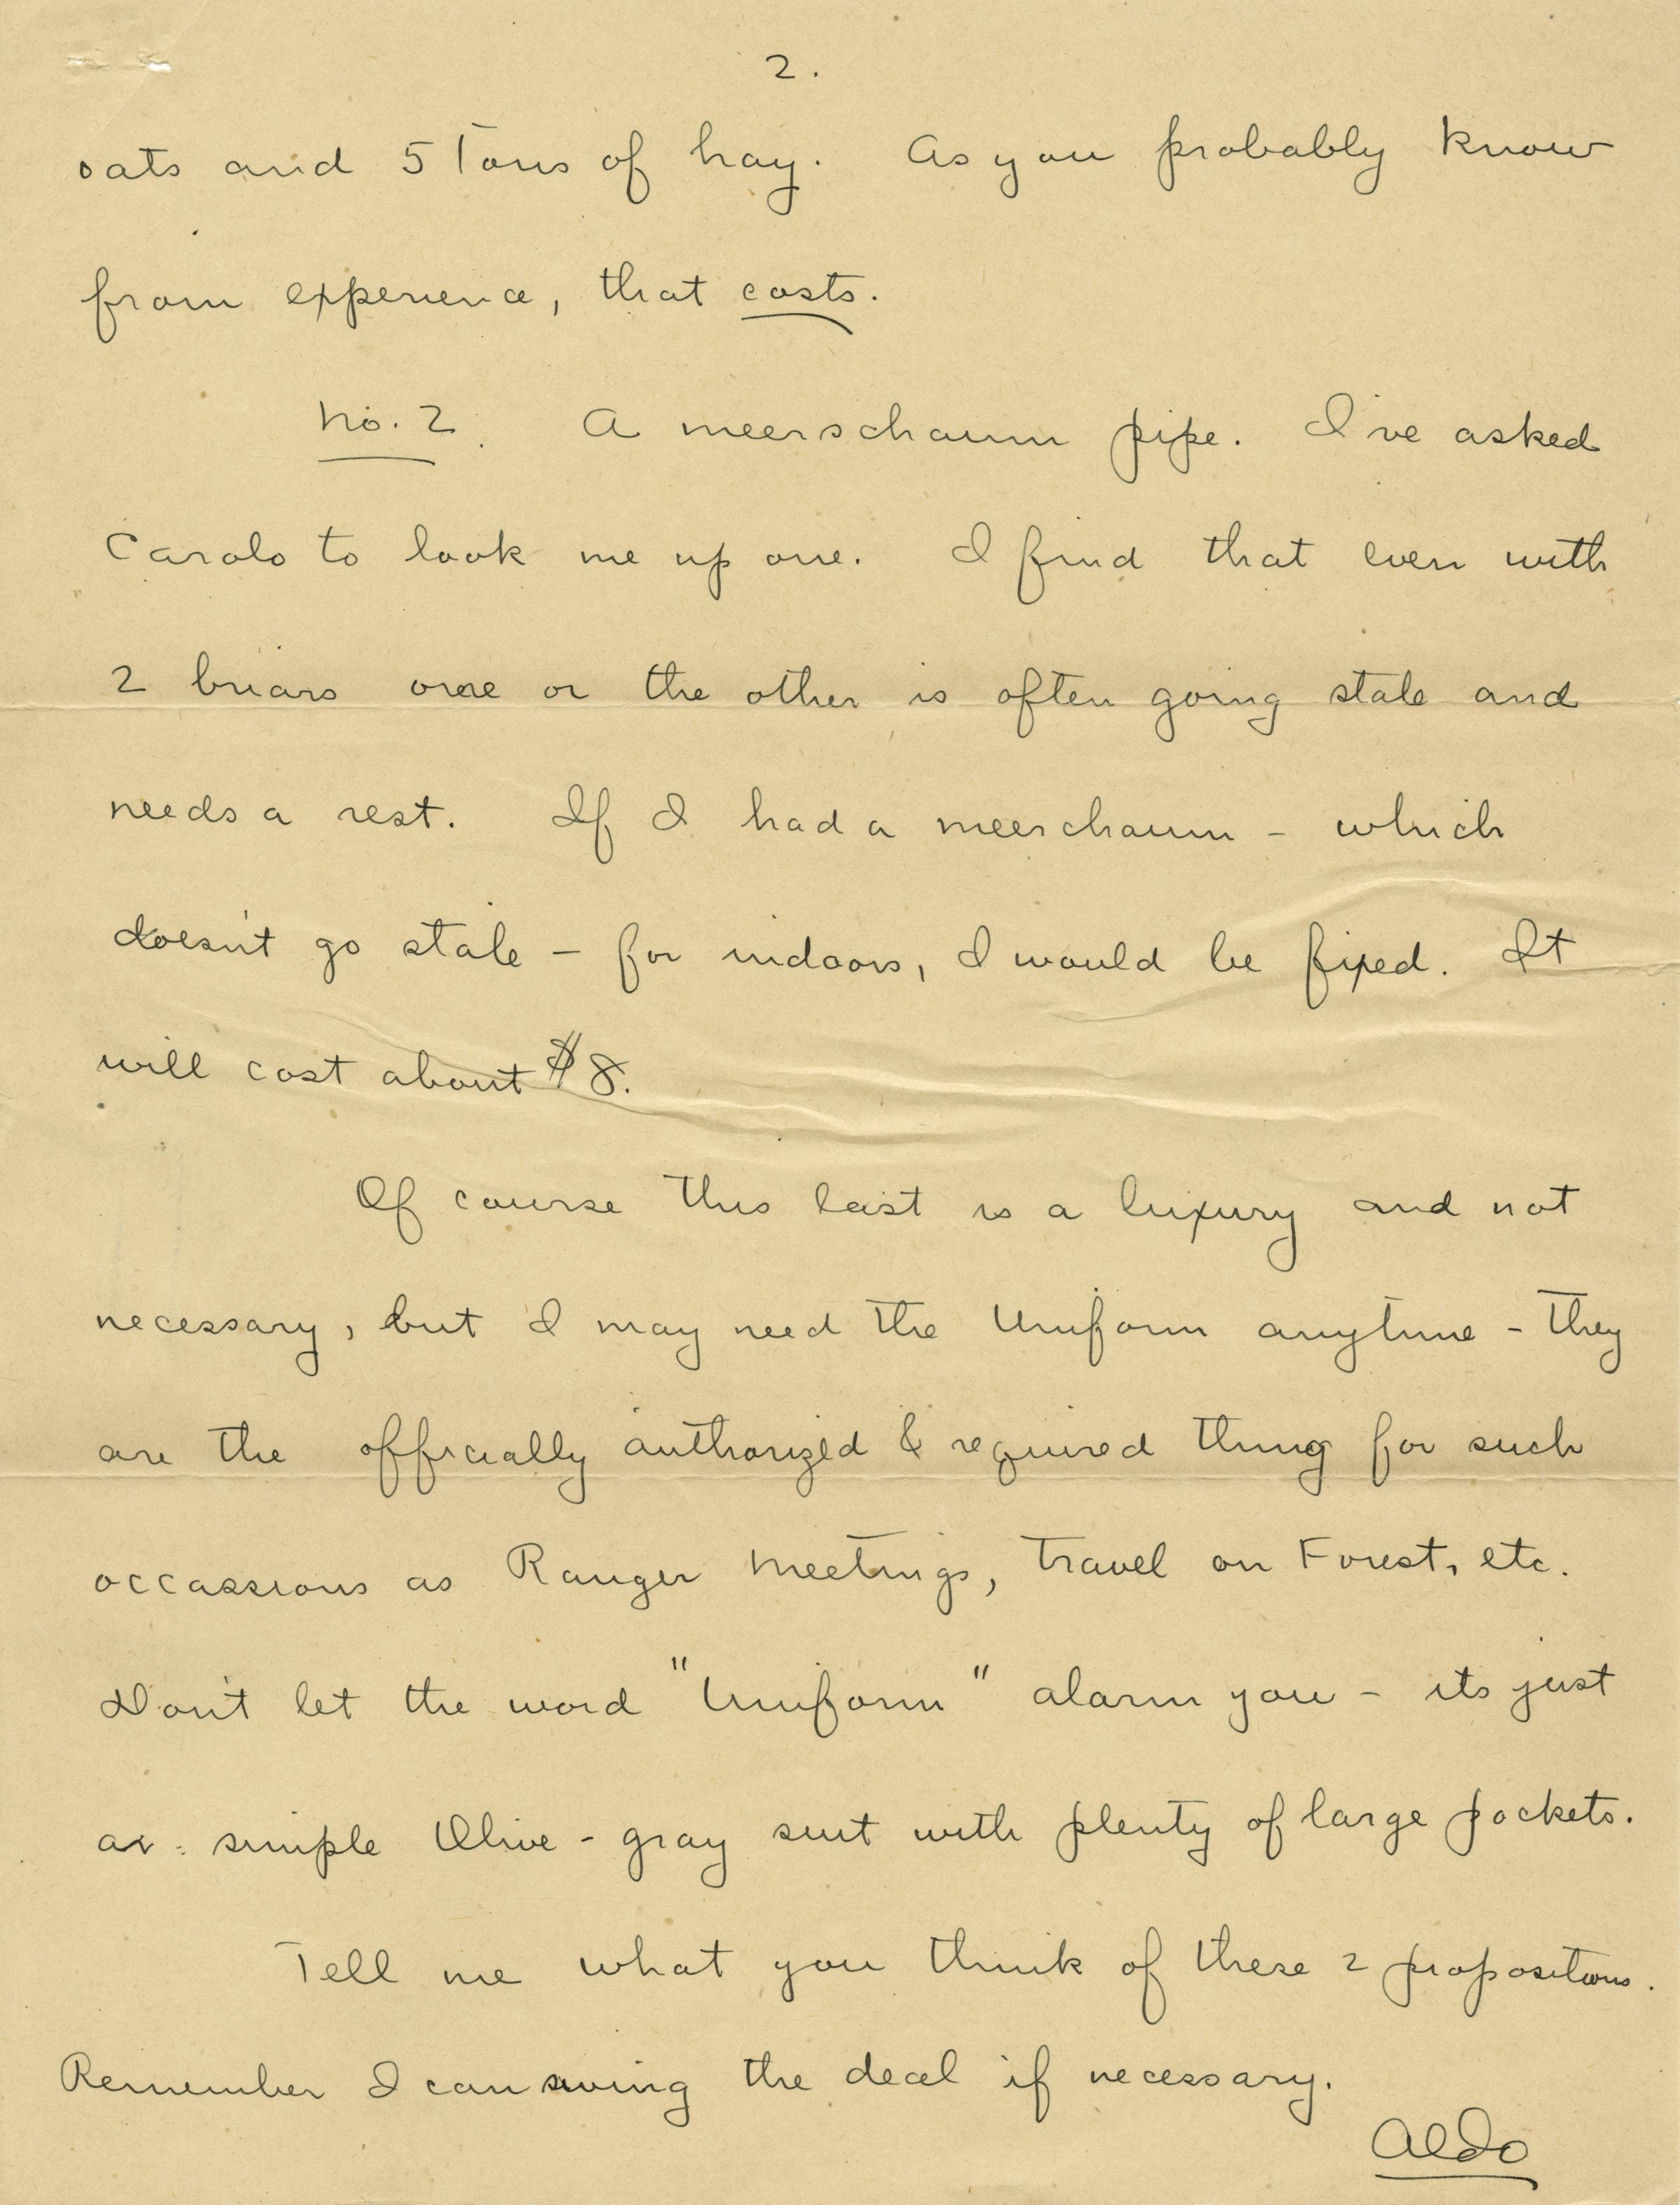 2.
oats and 5 Tons of hay. As you probably know
from experience, that costs.
No. 2. A meerschaum pipe. I've asked
Carolo to look me up one. I find that even with
2 briars one or the other is often going stale and
needs a rest. If I had a meerchaum - which
doesn't go stale - for indoors, I would be fixed. It
will cost about $8.
Of course this last is a luxury and not
necessary, but I may need the Uniform anytime - they
are the officially authorized & required thing for such
occassions as Ranger Meetings, Travel on Forest, etc.
Don't let the word "Uniform" alarm you - its just
a simple Olive-gray suit with plenty of large pockets.
Tell me what you think of these 2 propositions.
Remember I can swing the deal if necessary.
Aldo